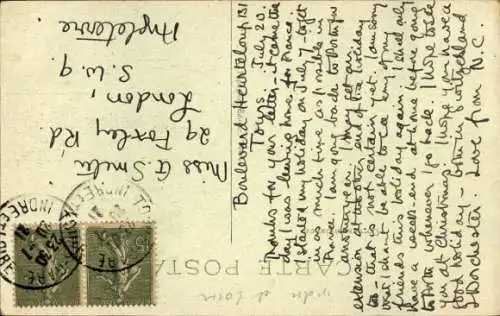 Boulevard Heurteloup 131
Tours July 20.
Thanks for your letter - it came the
day I was leaving home for France.
I started my holiday on July 7 - to get
in as much time as possible in
France. I am going back to Portugal
another year. I may get an
extension at the other end of the holiday
too - that is not certain yet. I am sorry
that I shan't be able to see any of my
friends this holiday again. I shall only
have a week-end at home before going
to Porto whenever I go back. I hope to see
you at Christmas. I hope you have a
good holiday - both in Switzerland
& Dorchester. Love from N.C.
Miss G. Smith
29 Foxley Rd.
London,
S.W.9.
Angleterre
CARTE POSTALE
Indre et Loire
INDRE ET LOIRE
GARE
INDRE ET LOIRE
GARE
15